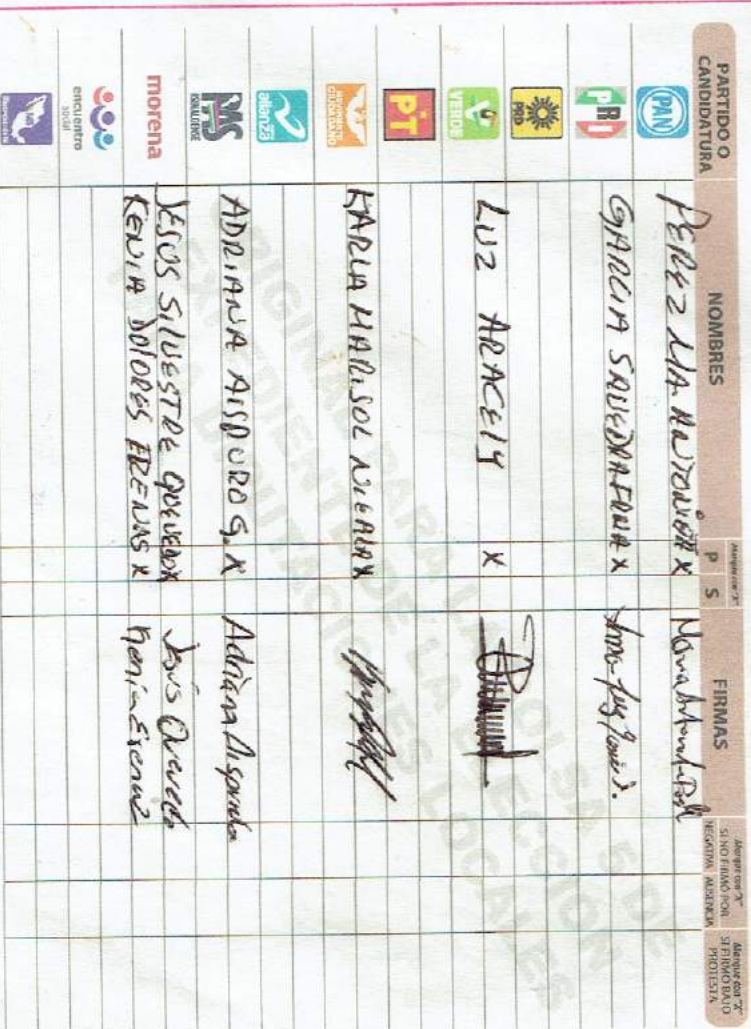 PARTIDO O
CANDIDATURA
NOMBRES
Marque con "X"
P S
FIRMAS
Marque con "X"
SI NO FIRMÓ POR
NEGATIVA AUSENCIA
Marque con "X"
SI FIRMÓ BAJO
PROTESTA
PAN
PEREZ MA. ANTONIETA X
PRI
GARCIA X
PRD
VERDE
LUZ ARACELY X
PT
MOVIMIENTO
CIUDADANO
KARLA MARISOL X
alianza
PAS
SINALOENSE
ADRIANA AISPURO S. X Adriana Aispuro
morena
JESUS SILVESTRE QUEVEDO X Jesús Quevedo
KENIA DOLORES X Kenia
encuentro
social
ORIGINAL PARA LA BOLSA DE
EXPEDIENTE DE LA ELECCIÓN
PARA DIPUTACIONES LOCALES